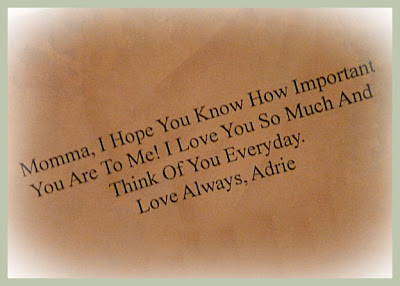 Momma, I Hope You Know How Important
You Are To Me! I Love You So Much And
Think Of You Everyday.
Love Always, Adrie